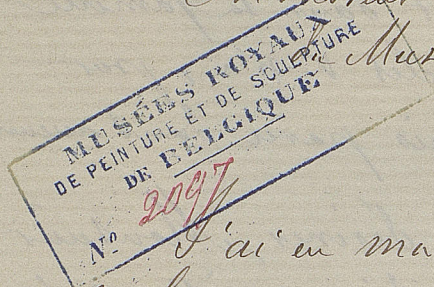 Mus
MUSÉES ROYAUX
DE PEINTURE ET DE SCULPTURE
DE BELGIQUE
Nº 2097
J'ai eu ma